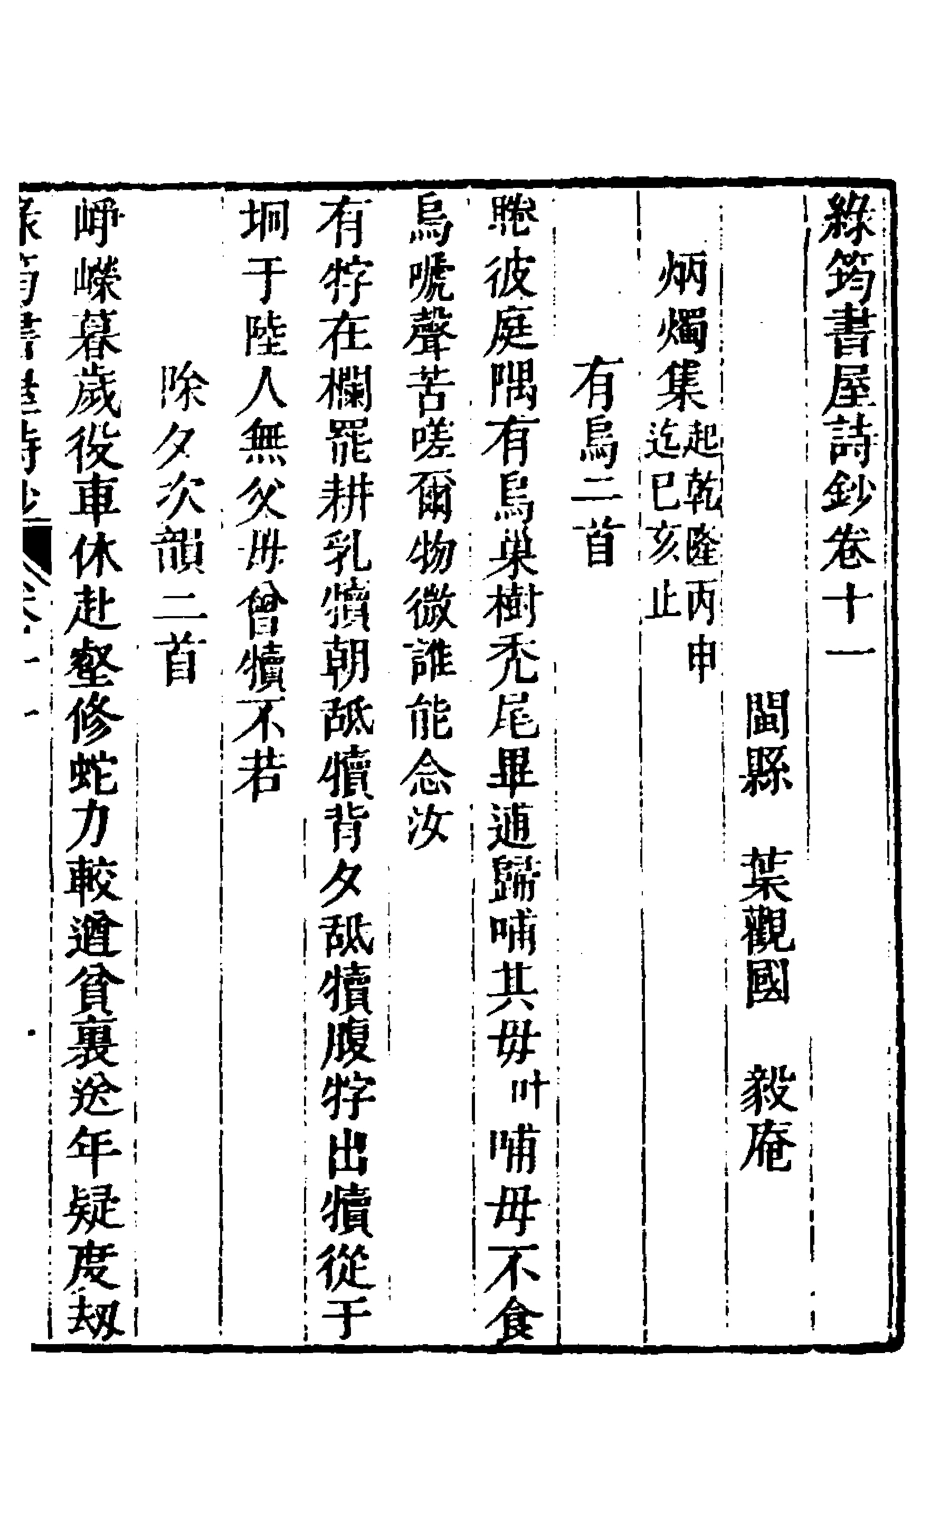 綠筠書屋詩鈔卷十一
閩縣 葉觀國 毅庵
炳燭集起乾隆丙申迄巳亥止
有烏二首
聪彼庭隅有烏巢樹禿尾畢逋歸哺其毋叶哺毋不食
烏嗁聲苦嗟爾物微誰能念汝
有牸在欄罷耕乳犢朝䑛犢背夕䑛犢腹牸出犢從于
坰于陸人無父毋曾犢不若
除夕次韻二首
崢嶸暮歲役車休赴壑修蛇力較遒貧裏送年疑度刼
綠筠書屋詩鈔 卷十一